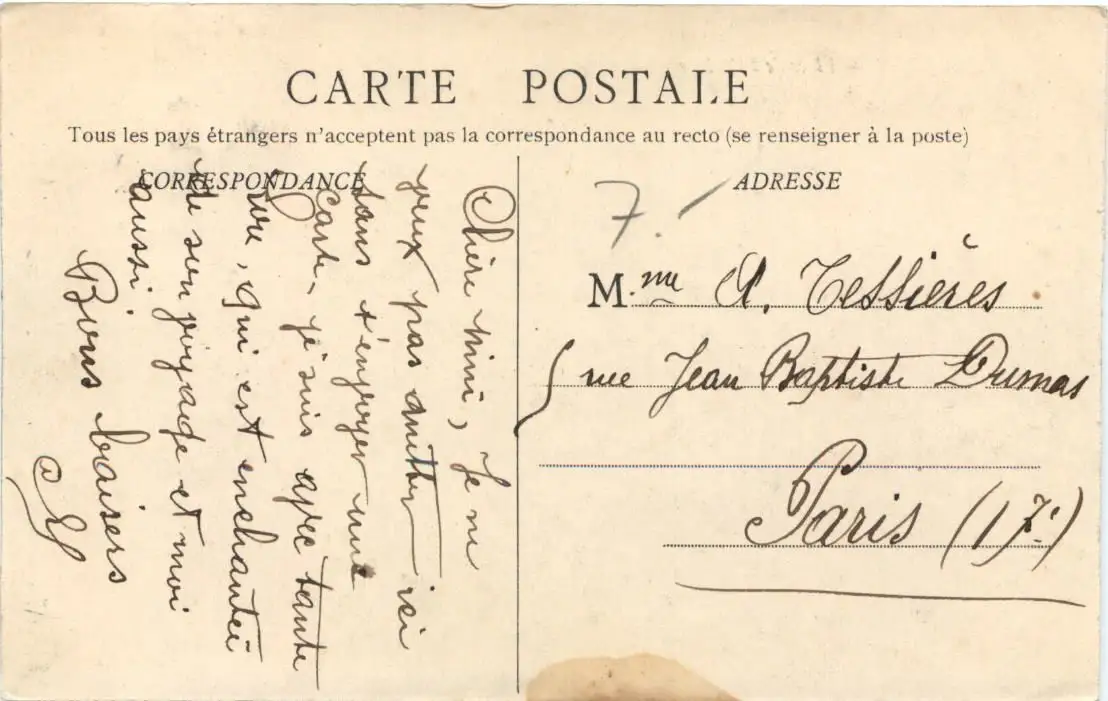 CARTE POSTALE
Tous les pays étrangers n'acceptent pas la correspondance au recto (se renseigner à la poste)
CORRESPONDANCE
Chère Mimi, Je ne
veux pas quitter ici
sans t'envoyer une
carte, je suis avec tante
qui est enchantée
de son voyage et moi
aussi
Bons baisers
ADRESSE
7.
Mme A. Tessières
rue Jean Baptiste Dumas
Paris (17e)